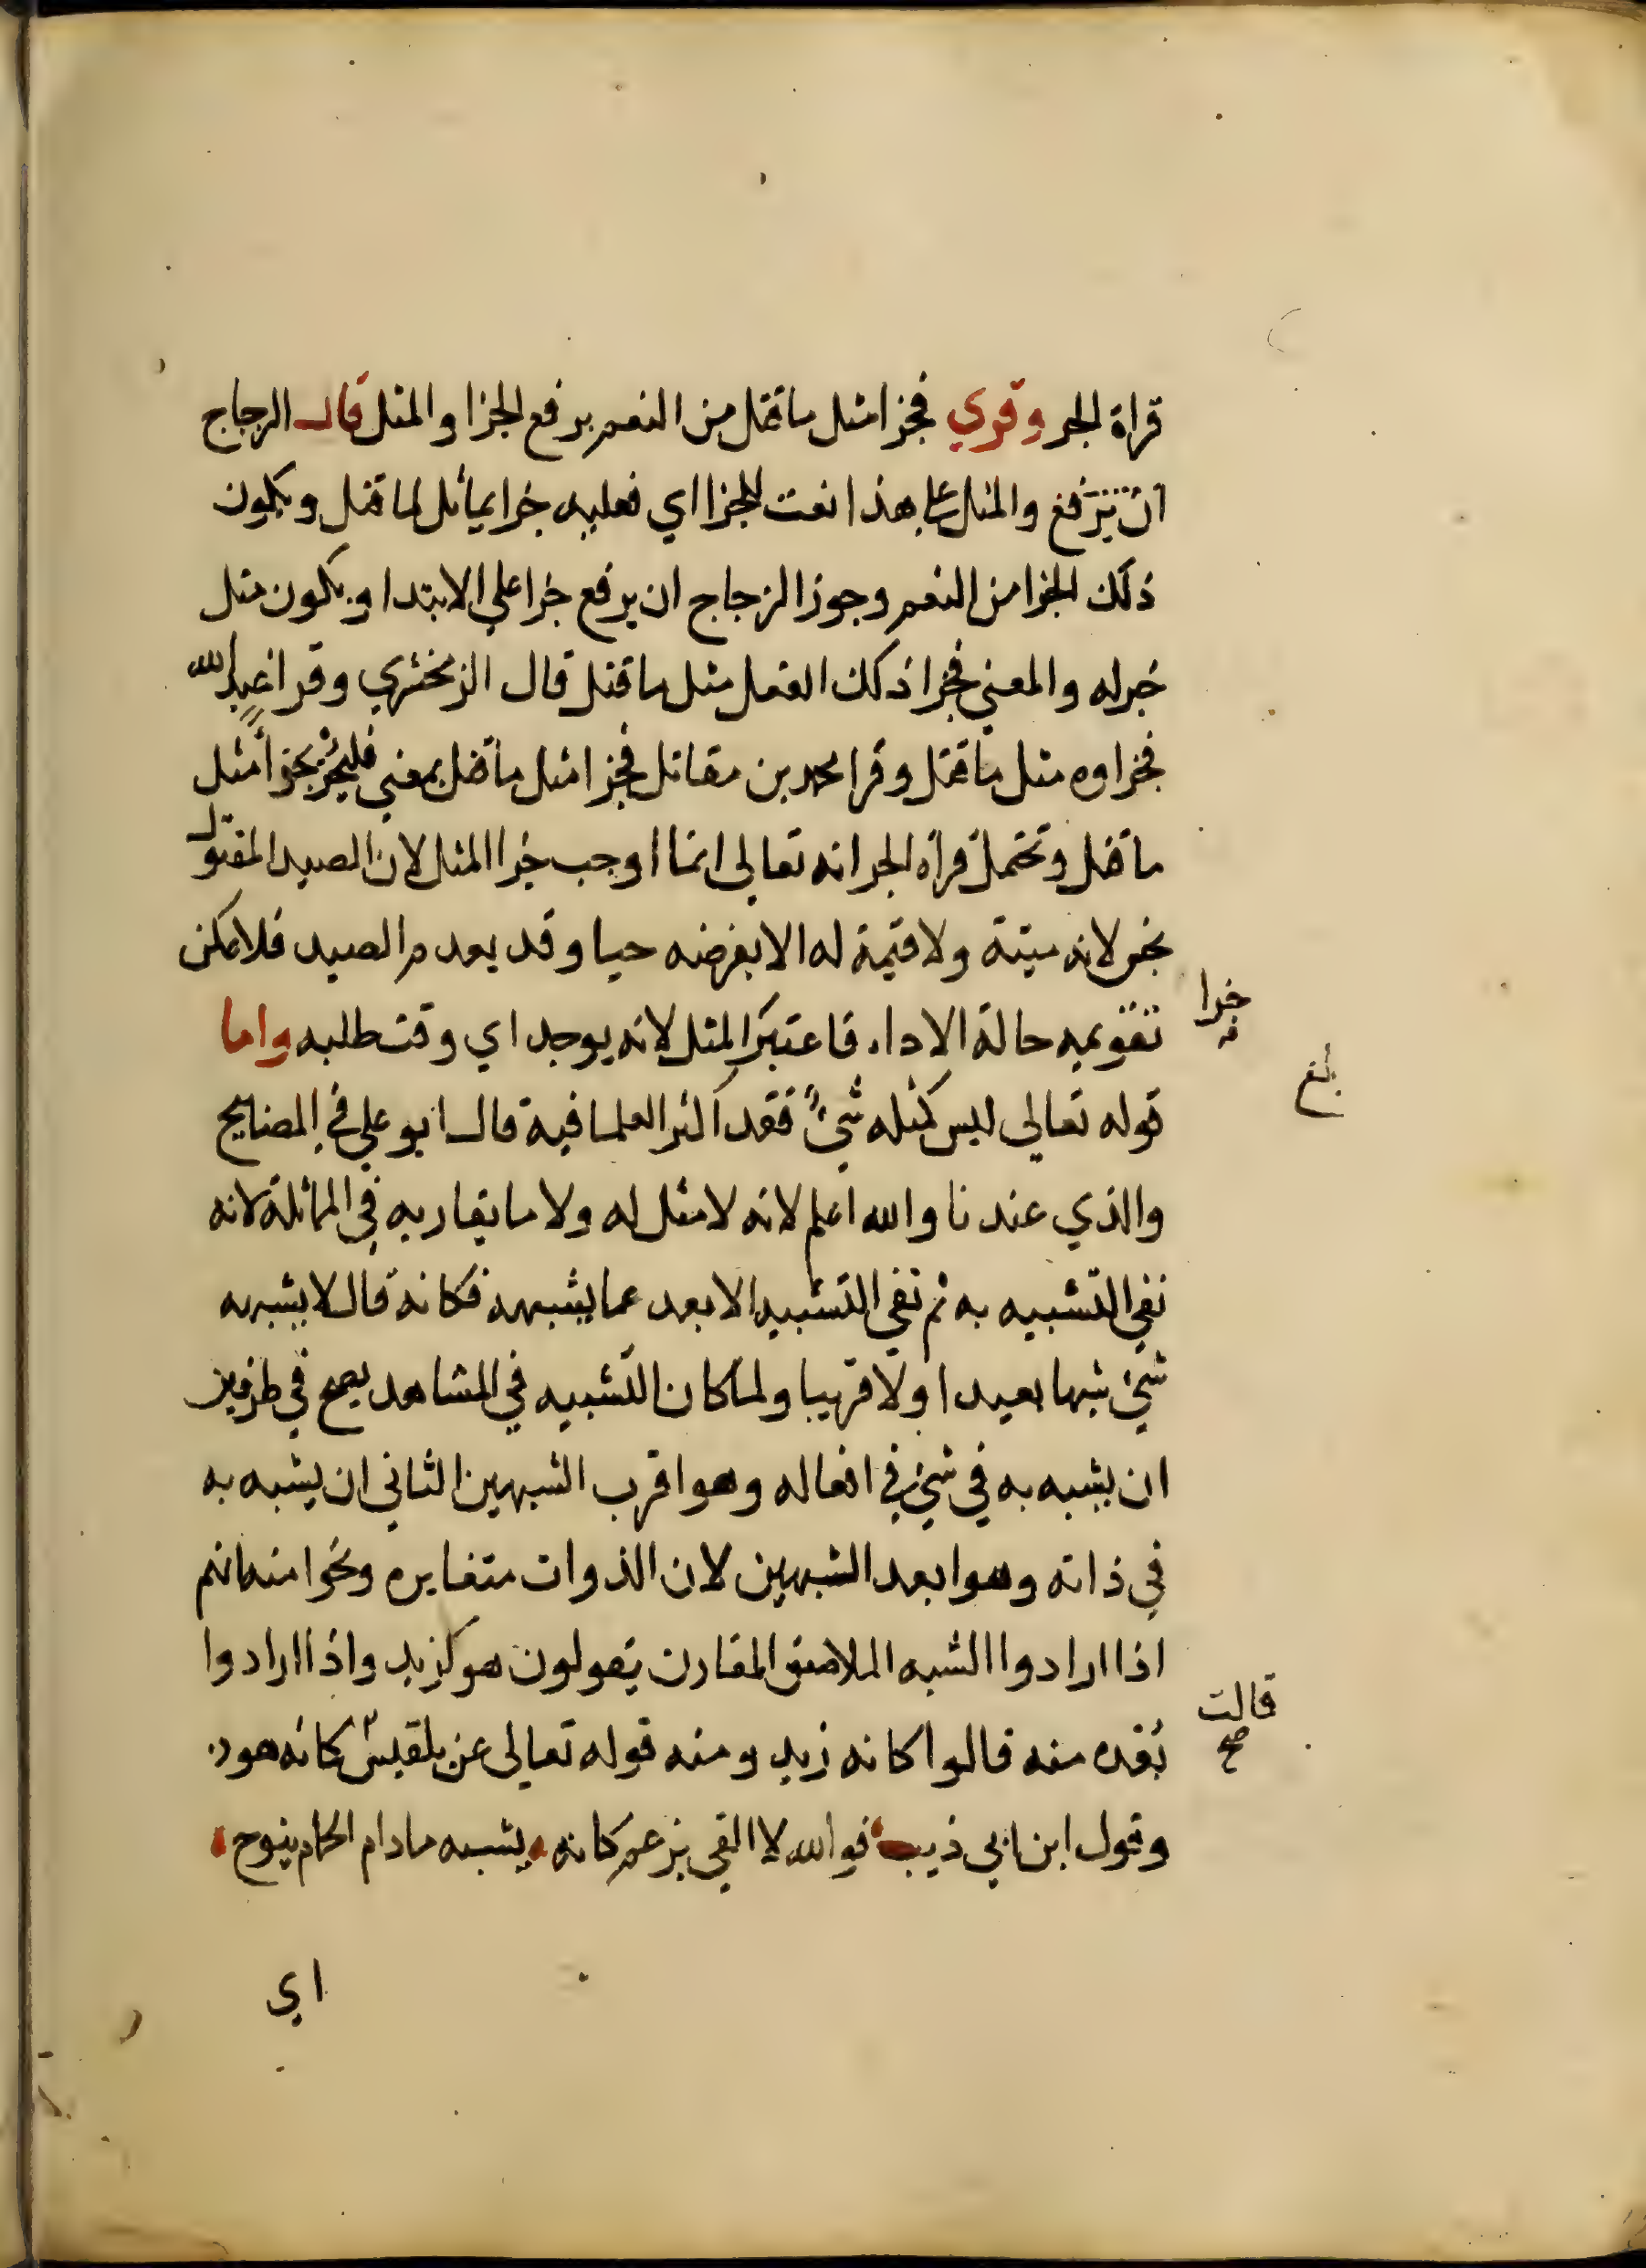 قراة الجر وقري فجزا مثل ما قتل من النعم برفع الجزا والمثل قال الزجاج
ان يرفع والمثل علي هذا نعت للجزا اي فعليه جزا يماثل لما قتل ويكون
ذلك الجزا من النعم وجوز الزجاج ان يرفع جزا علي الابتدا ويكون مثل
خبر له والمعني فجزا ذلك الفعل مثل ما قتل قال الزمخشري وقرا عبد الله
فجزاوه مثل ما قتل وقرا محمد بن مقاتل فجزا مثل ما قتل بمعني فليجز بجزا مثل
ما قتل وتحتمل قراة الجر انه تعالي انما اوجب جزا المثل لان الصيد المقتول
نجس لانه ميتة ولا قيمة له الا بفرضه حيا وقد يعدم الصيد فلا يمكن
تقويمه حالة الاداء فاعتبر المثل لانه يوجد اي وقت طلبه واما
جزا
بلغ
قوله تعالي ليس كمثله شيء فقد اكثر العلما فيه قال ابو علي في المصابيح
والذي عندنا والله اعلم لانه لا مثل له ولا ما يقاربه في المماثلة لانه
نفي التشبيه به ثم نفي التشبيه الابعد عما يشبهه فكانه قال لا يشبهه
شيئ شبها بعيدا ولا قريبا ولما كان التشبيه في المشاهد يصح في طرفين
ان يشبه به في شيئ في افعاله وهو اقرب الشبهين الثاني ان يشبه به
في ذاته وهو ابعد الشبهين لان الذوات متغايره ونحوا منه انهم
اذا ارادوا الشبه الملاصق المقارن يقولون هو كزيد واذا ارادوا
بعده منه قالوا كانه زيد ومنه قوله تعالي عن بلقيس كانه هو
قالت
صح
وقول ابن ابي ذيب فوالله لا القي بزعم كانه يشبه ما دام الحمام ينوح
اي